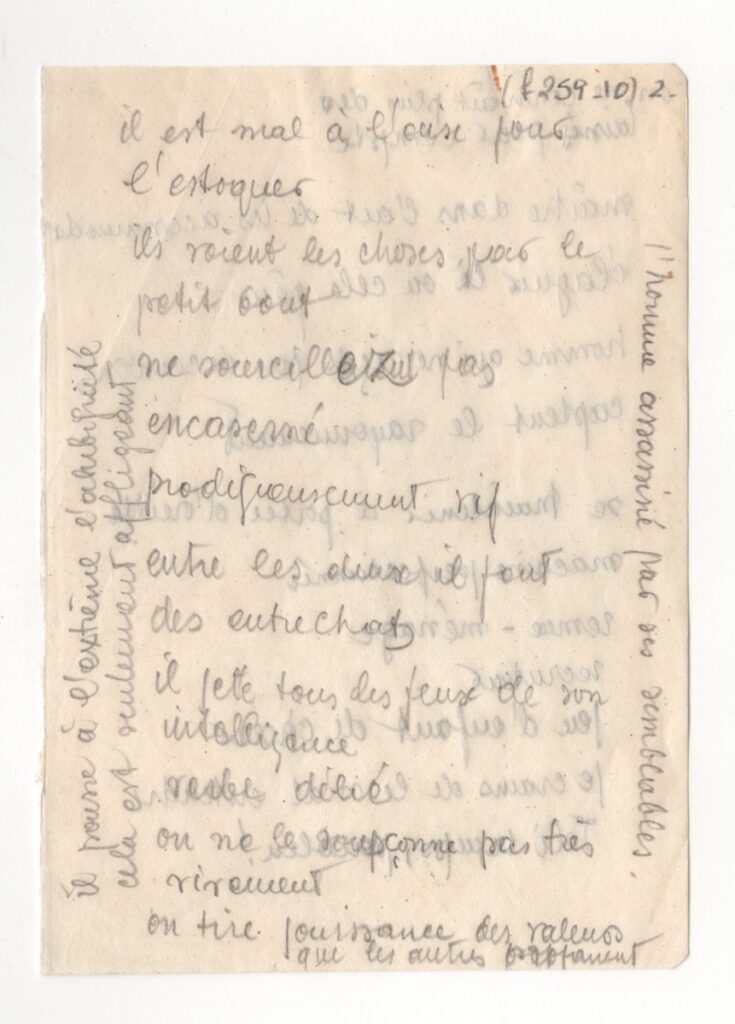 (f 259-10) 2-
il est mal à l'aise pour
l'estoquer
ils voient les choses par le
petit bout
ne sourcillez pas
encaserné
prodigieusement vif
entre les deux il font
des entrechats
il jette tous les feux de son
intelligence
verbe délié
on ne le soupçonne pas très
vivement
on tire jouissance des valeurs
que les autres
il pousse à l'extrême l'ambiguité
cela est seulement affligeant
l'homme assassiné par ses semblables.